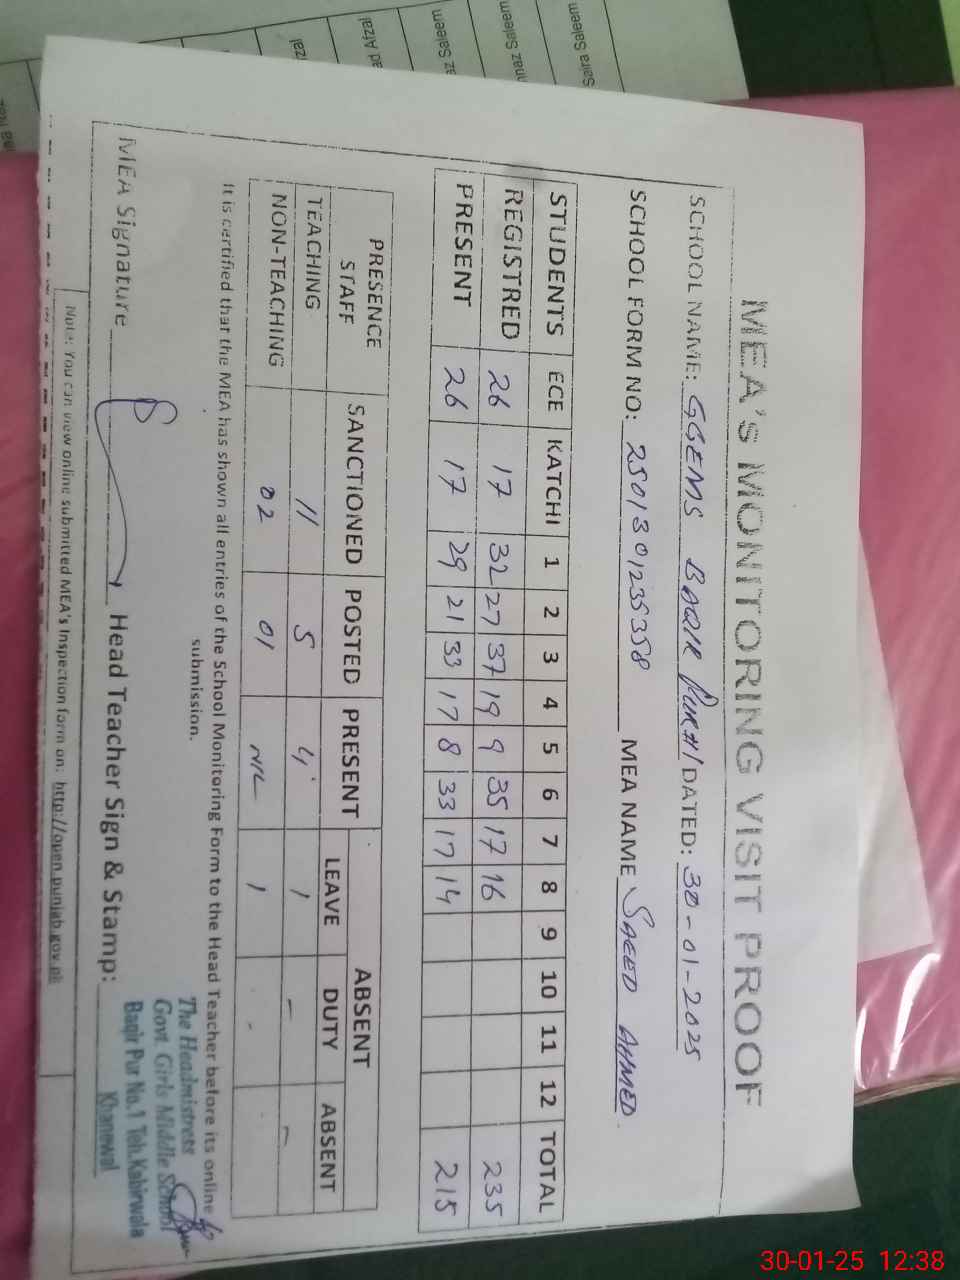 Saira Saleem
naz Saleem
az Saleem
ad Afzal
fzal
MEA'S MONITORING VISIT PROOF
SCHOOL NAME: GGEMS BAQIR PUR#1 DATED: 30-01-2025
SCHOOL FORM NO: 2501301235358 MEA NAME SAEED AHMED
STUDENTS ECE KATCHI 1 2 3 4 5 6 7 8 9 10 11 12 TOTAL
REGISTRED 26 17 32 27 37 19 9 35 17 16 235
PRESENT 26 17 29 21 33 17 8 33 17 14 215
PRESENCE STAFF SANCTIONED POSTED PRESENT ABSENT
LEAVE DUTY ABSENT
TEACHING 11 5 4 1 - -
NON-TEACHING 02 01 NIL 1 -
It is certified that the MEA has shown all entries of the School Monitoring Form to the Head Teacher before its online
submission.
MEA Signature Head Teacher Sign & Stamp:
The Headmistress
Govt. Girls Middle School
Baqir Pur No.1 Teh.Kabirwala
Khanewal
Note: You can view online submitted MEA's Inspection form on: http://open.punjab.gov.pk
30-01-25 12:38